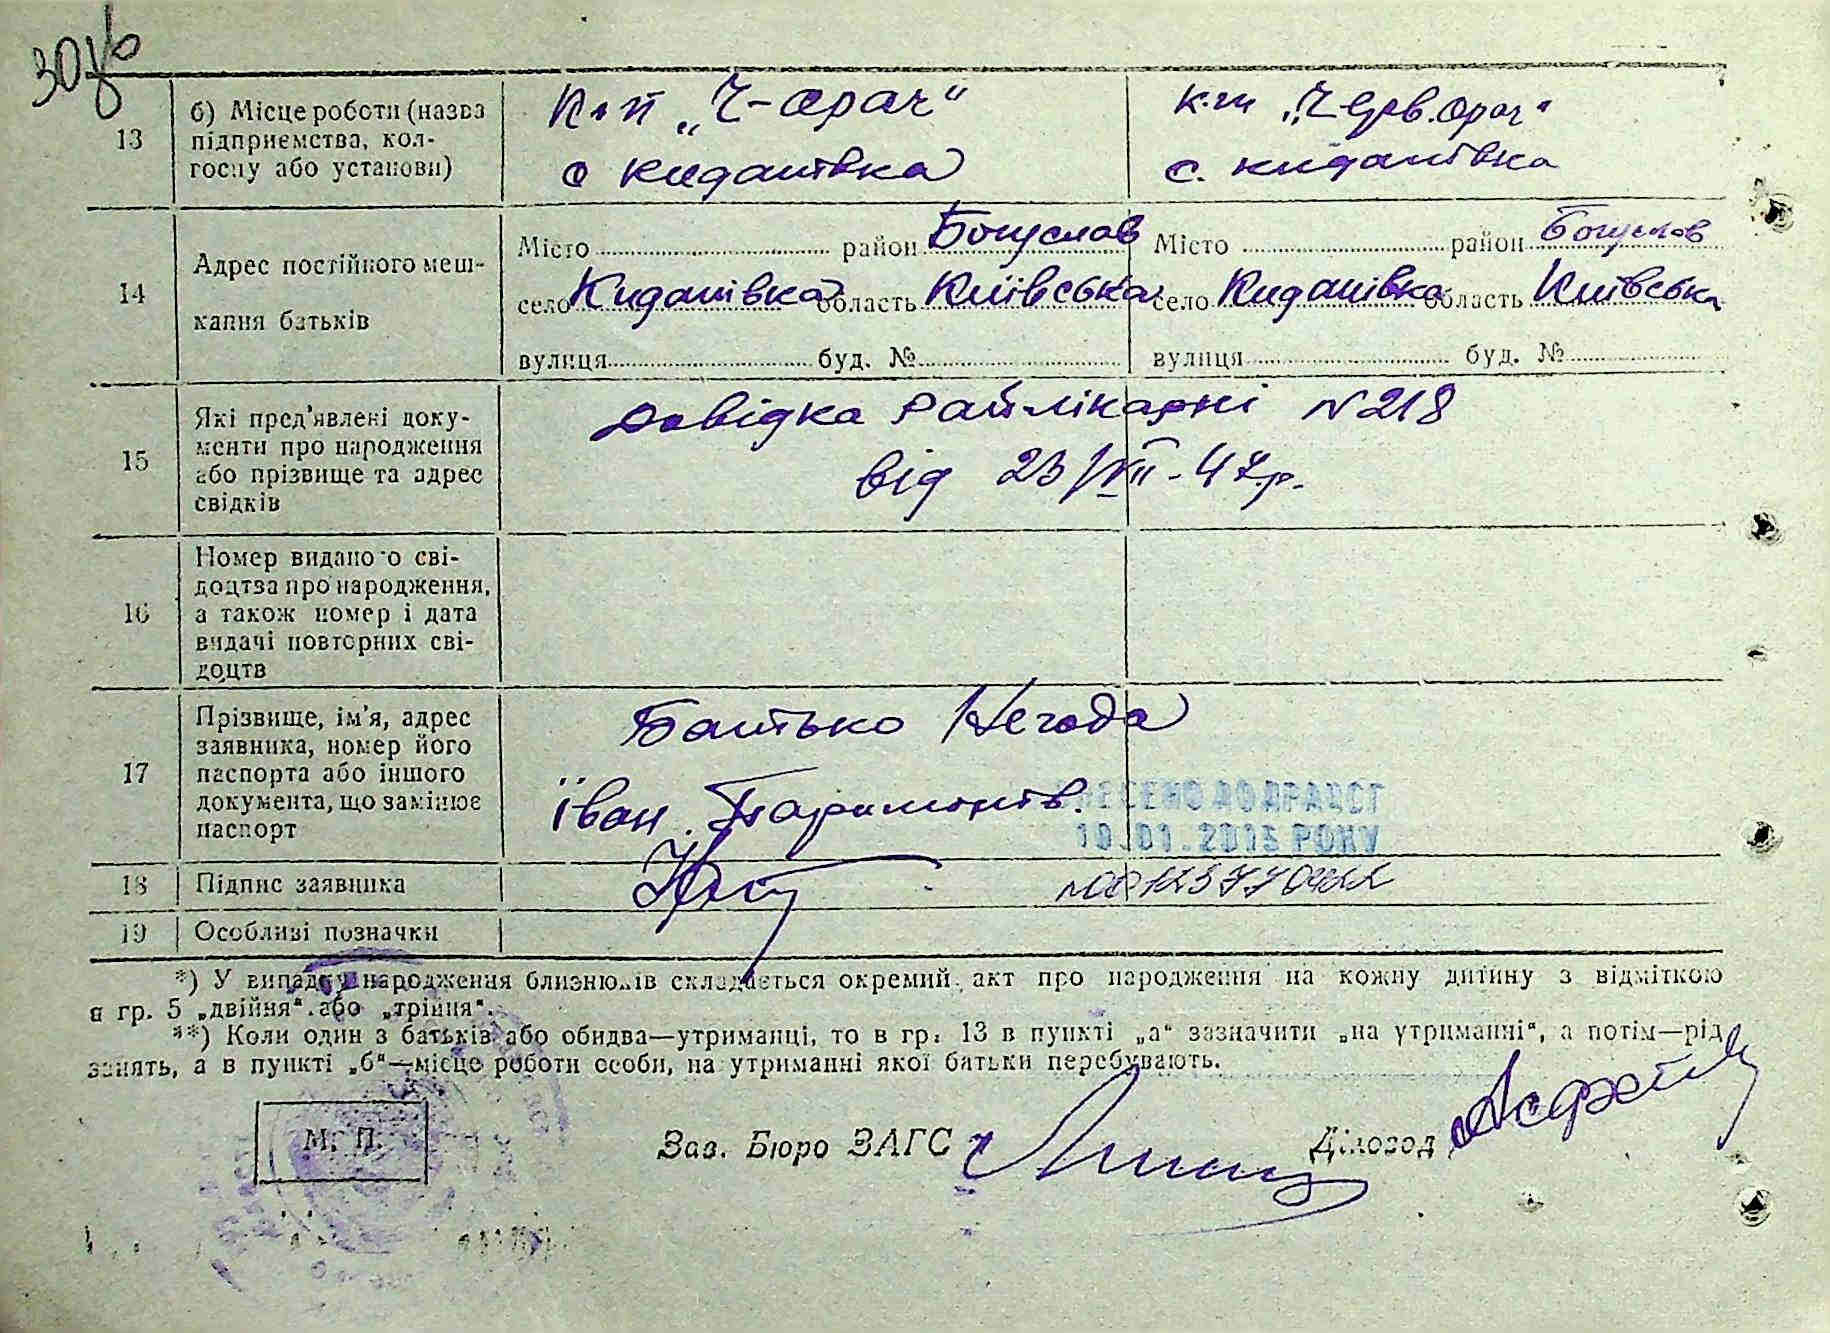 30зв
13
б) Місце роботи (назва
підприємства, кол-
госпу або установи)
К-п „Ч-орач“
с Кидашівка
к-гп „Черв. орач“
с. Кидашівка
14
Адрес постійного меш-
кання батьків
Місто район Богуслав
село Кидашівка область Київська
вулиця буд. №
Місто район Богуслав
село Кидашівка область Київська
вулиця буд. №
15
Які пред'явлені доку-
менти про народження
або прізвище та адрес
свідків
Довідка Райлікарні №218
від 23/VII-47р.
16
Номер виданого сві-
доцтва про народження,
а також номер і дата
видачі повторних сві-
доцтв
17
Прізвище, ім'я, адрес
заявника, номер його
паспорта або іншого
документа, що замінює
паспорт
Батько Негода
Іван Парамонів.
ВНЕСЕНО ДО ДРАЦСГ
10.01.2015 РОКУ
18
Підпис заявника
19
Особливі позначки
*) У випадку народження близнюків складається окремий акт про народження на кожну дитину з відміткою
в гр. 5 „двійня“ або „трійня“.
**) Коли один з батьків або обидва—утриманці, то в гр. 13 в пункті „а“ зазначити „на утриманні“, а потім—рід
занять, а в пункті „б“—місце роботи особи, на утриманні якої батьки перебувають.
М. П.
Зав. Бюро ЗАГС
Діловод